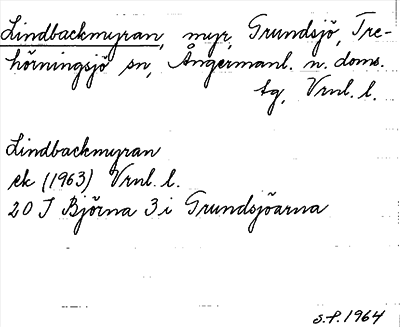 Lindbackmyran, myr, Grundsjö, Tre-
hörningsjö sn, Ångermanl. n. doms.
tg, Vrnl. l.
Lindbackmyran
ek (1963) Vrnl. l.
20 J Björna 3 i Grundsjöarna
S.P. 1964